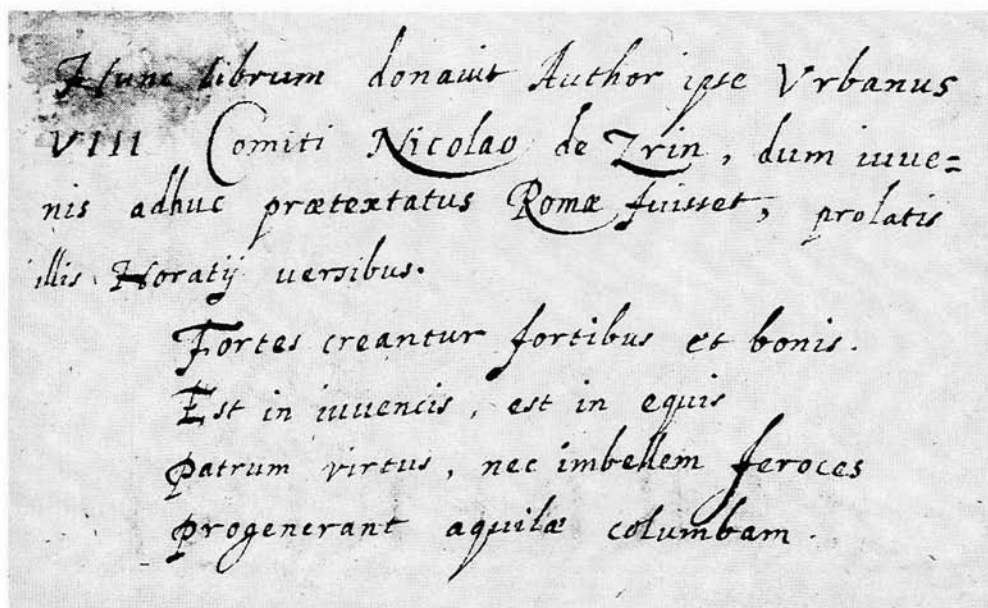 Hunc librum donauit Author ipse Vrbanus
VIII Comiti Nicolao de Zrin, dum iuue=
nis adhuc prætextatus Romæ fuisset, prolatis
illis Horatij uersibus.
Fortes creantur fortibus et bonis.
Est in iuuencis, est in equis
Patrum virtus, nec imbellem feroces
Progenerant aquilæ columbam.